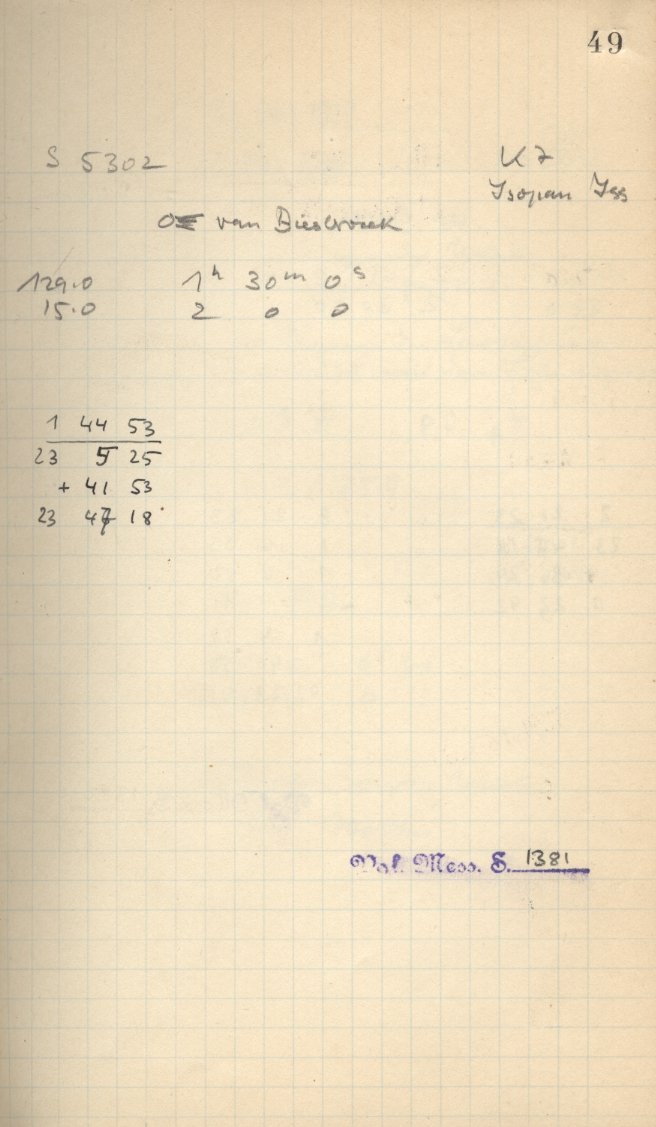 49
S 5302
K 7
Isopan Iss
van Biesbroeck
129.0 1h 30m 0s
15.0 2 0 0
1 44 53
23 5 25
+ 41 53
23 47 18
Mess. S. 1381